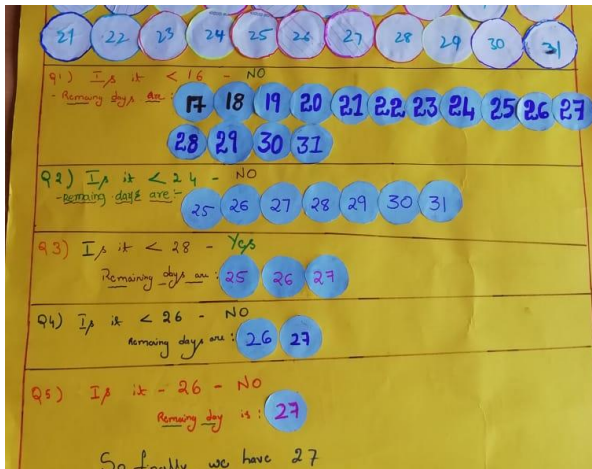 21 22 23 24 25 26 27 28 29 30 31
Q1) Is it < 16 - NO
- Remaing days are: 17 18 19 20 21 22 23 24 25 26 27
28 29 30 31
Q2) Is it < 24 - NO
- Remaing days are:- 25 26 27 28 29 30 31
Q3) Is it < 28 - Yes
Remaining days are: 25 26 27
Q4) Is it < 26 - NO
Remaing days are: 26 27
Q5) Is it - 26 - NO
Remaing day is: 27
So finally we have 27